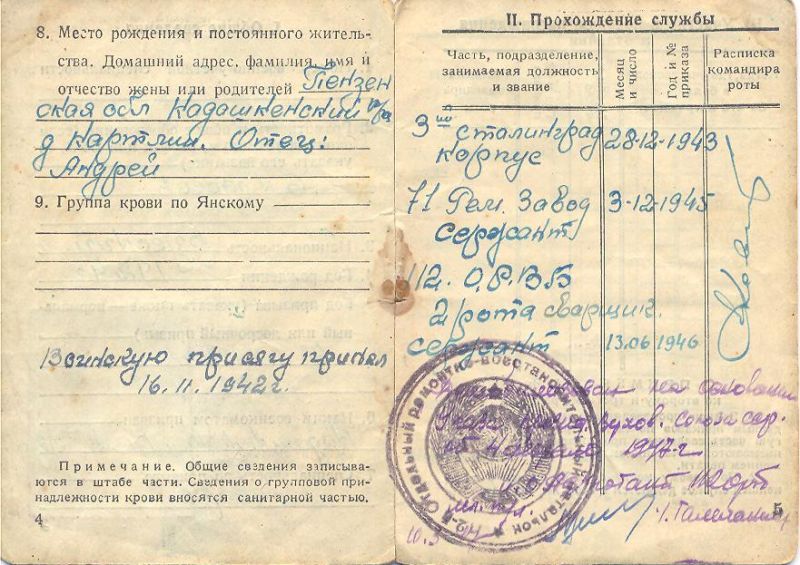 8. Место рождения и постоянного житель-
ства. Домашний адрес, фамилия, имя и
отчество жены или родителей Пензен
ская обл Кадашкенский
д Картлии. Отец:
Андрей
9. Группа крови по Янскому
Воинскую присягу принял
16.11.1942г.
Примечание. Общие сведения записыва-
ются в штабе части. Сведения о групповой при-
надлежности крови вносятся санитарной частью.
4
II. Прохождение службы
Часть, подразделение,
занимаемая должность
и звание
Месяц
и число
Год и №
приказа
Расписка
командира
роты
3ий сталинград
корпус 28-12-1943
71 Рем. Завод 3-12-1945
сержант
112. О.Р.В.Б
2 рота сварщик.
сержант 13.06 1946
Отдельный ремонтно-восстановительный батальон
на основании
Верхов. Союза ССР
1947-г
112 орвб
5